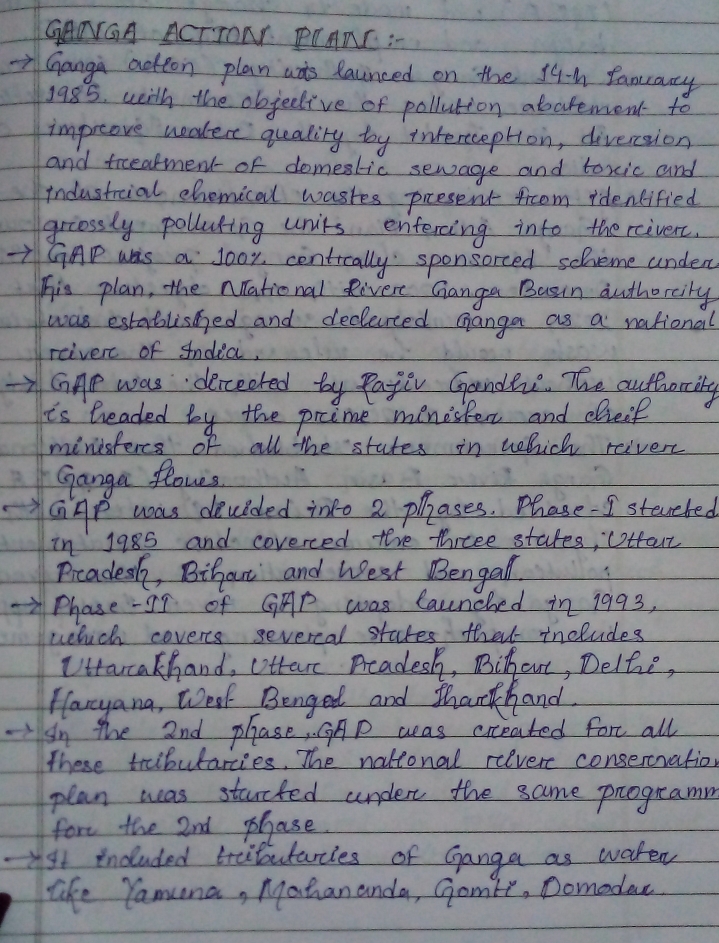 GANGA ACTION PLAN :-
→ Ganga action plan was launced on the 14-th January
1985. with the objective of pollution abatement to
improve water quality by interception, diversion
and treatment of domestic sewage and toxic and
industrial chemical wastes present from identified
grossly polluting units entering into the river.
→ GAP was a 100% centrally sponsored scheme under
his plan, the National River Ganga Basin authority
was established and declared Ganga as a national
river of India.
→ GAP was directed by Rajiv Gandhi. The authority
is headed by the prime minister and cheif
ministers of all the states in which river
Ganga flows.
→ GAP was divided into 2 phases. Phase-I started
in 1985 and covered the three states, Uttar
Pradesh, Bihar and West Bengal.
→ Phase-II of GAP was launched in 1993,
which covers several states that includes
Uttarakhand, Uttar Pradesh, Bihar, Delhi,
Haryana, West Bengal and Jharkhand.
→ In the 2nd phase, GAP was created for all
these tributaries. The national river conservation
plan was started under the same programm
for the 2nd phase.
→ It included tributaries of Ganga as water
like Yamuna, Mahananda, Gomti, Domodar.